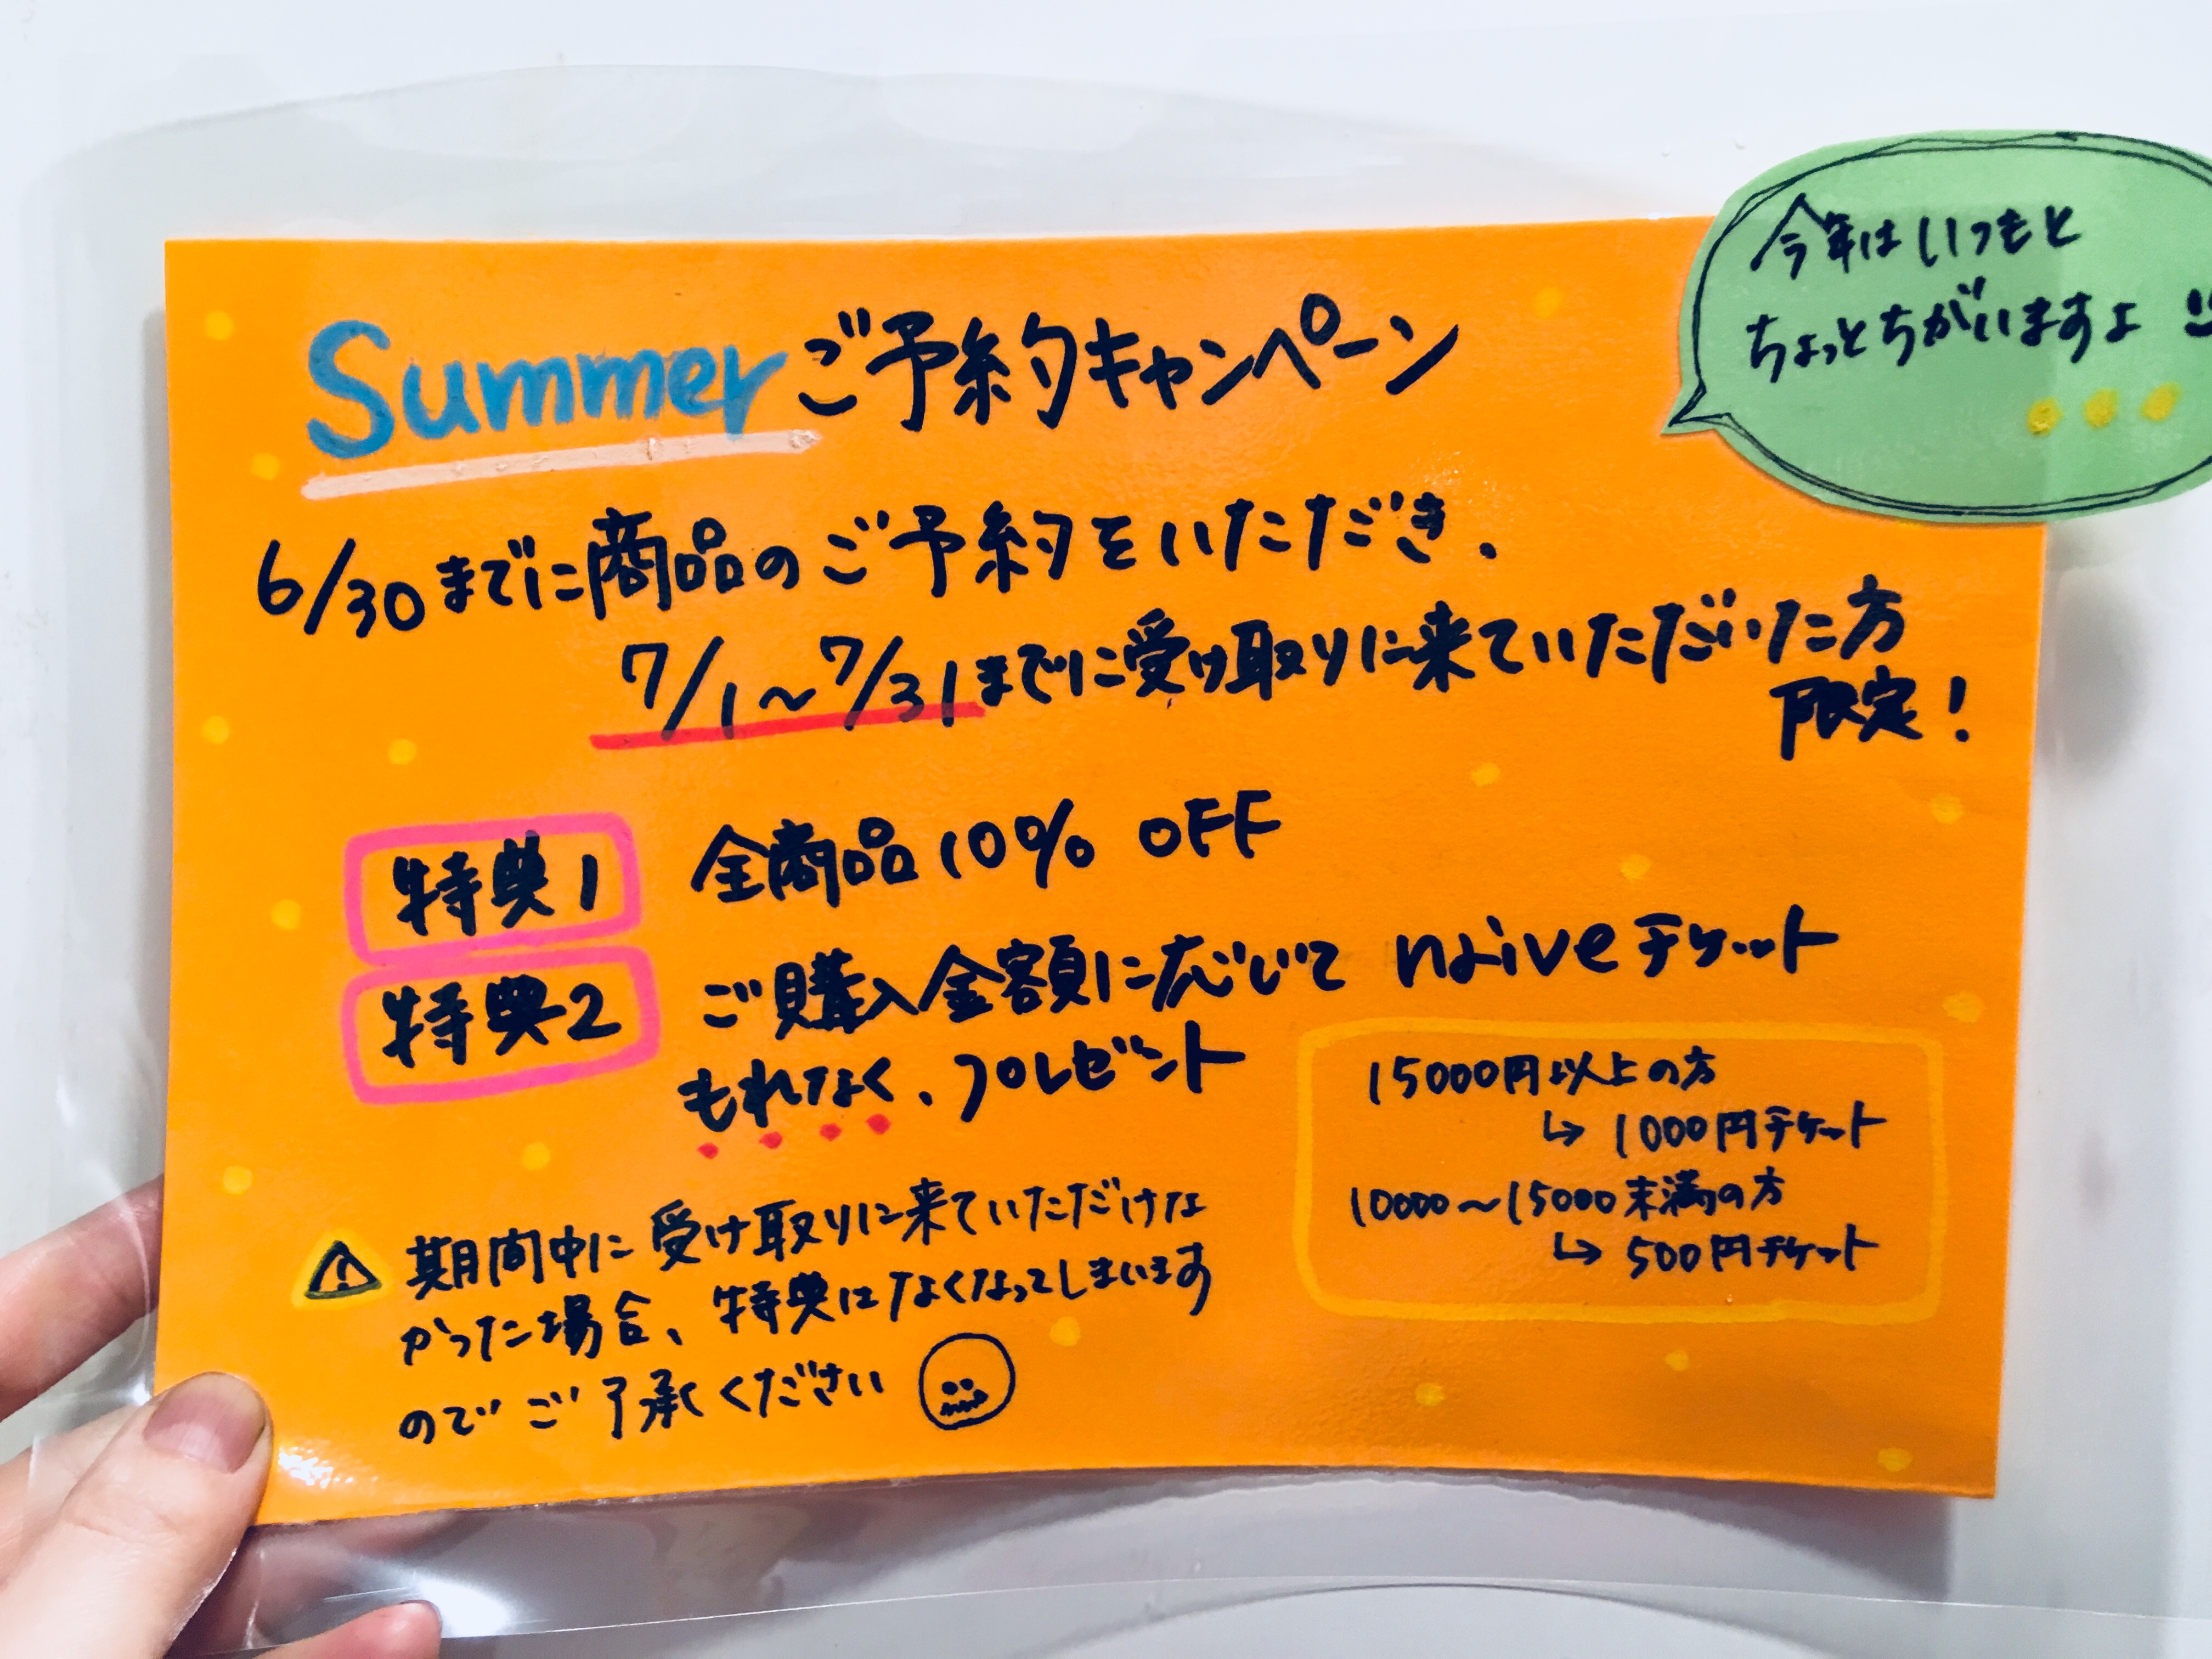 今年はいつもと
ちょっとちがいますよ
Summerご予約キャンペーン
6/30までに商品のご予約をいただき、
7/1～7/31までに受け取りに来ていただいた方
限定！
特典1 全商品10% OFF
特典2 ご購入金額に応じて naiveチケット
もれなく、プレゼント
15000円以上の方
↳ 1000円チケット
10000～15000未満の方
↳ 500円チケット
⚠ 期間中に受け取りに来ていただけな
かった場合、特典はなくなってしまいます
のでご了承ください